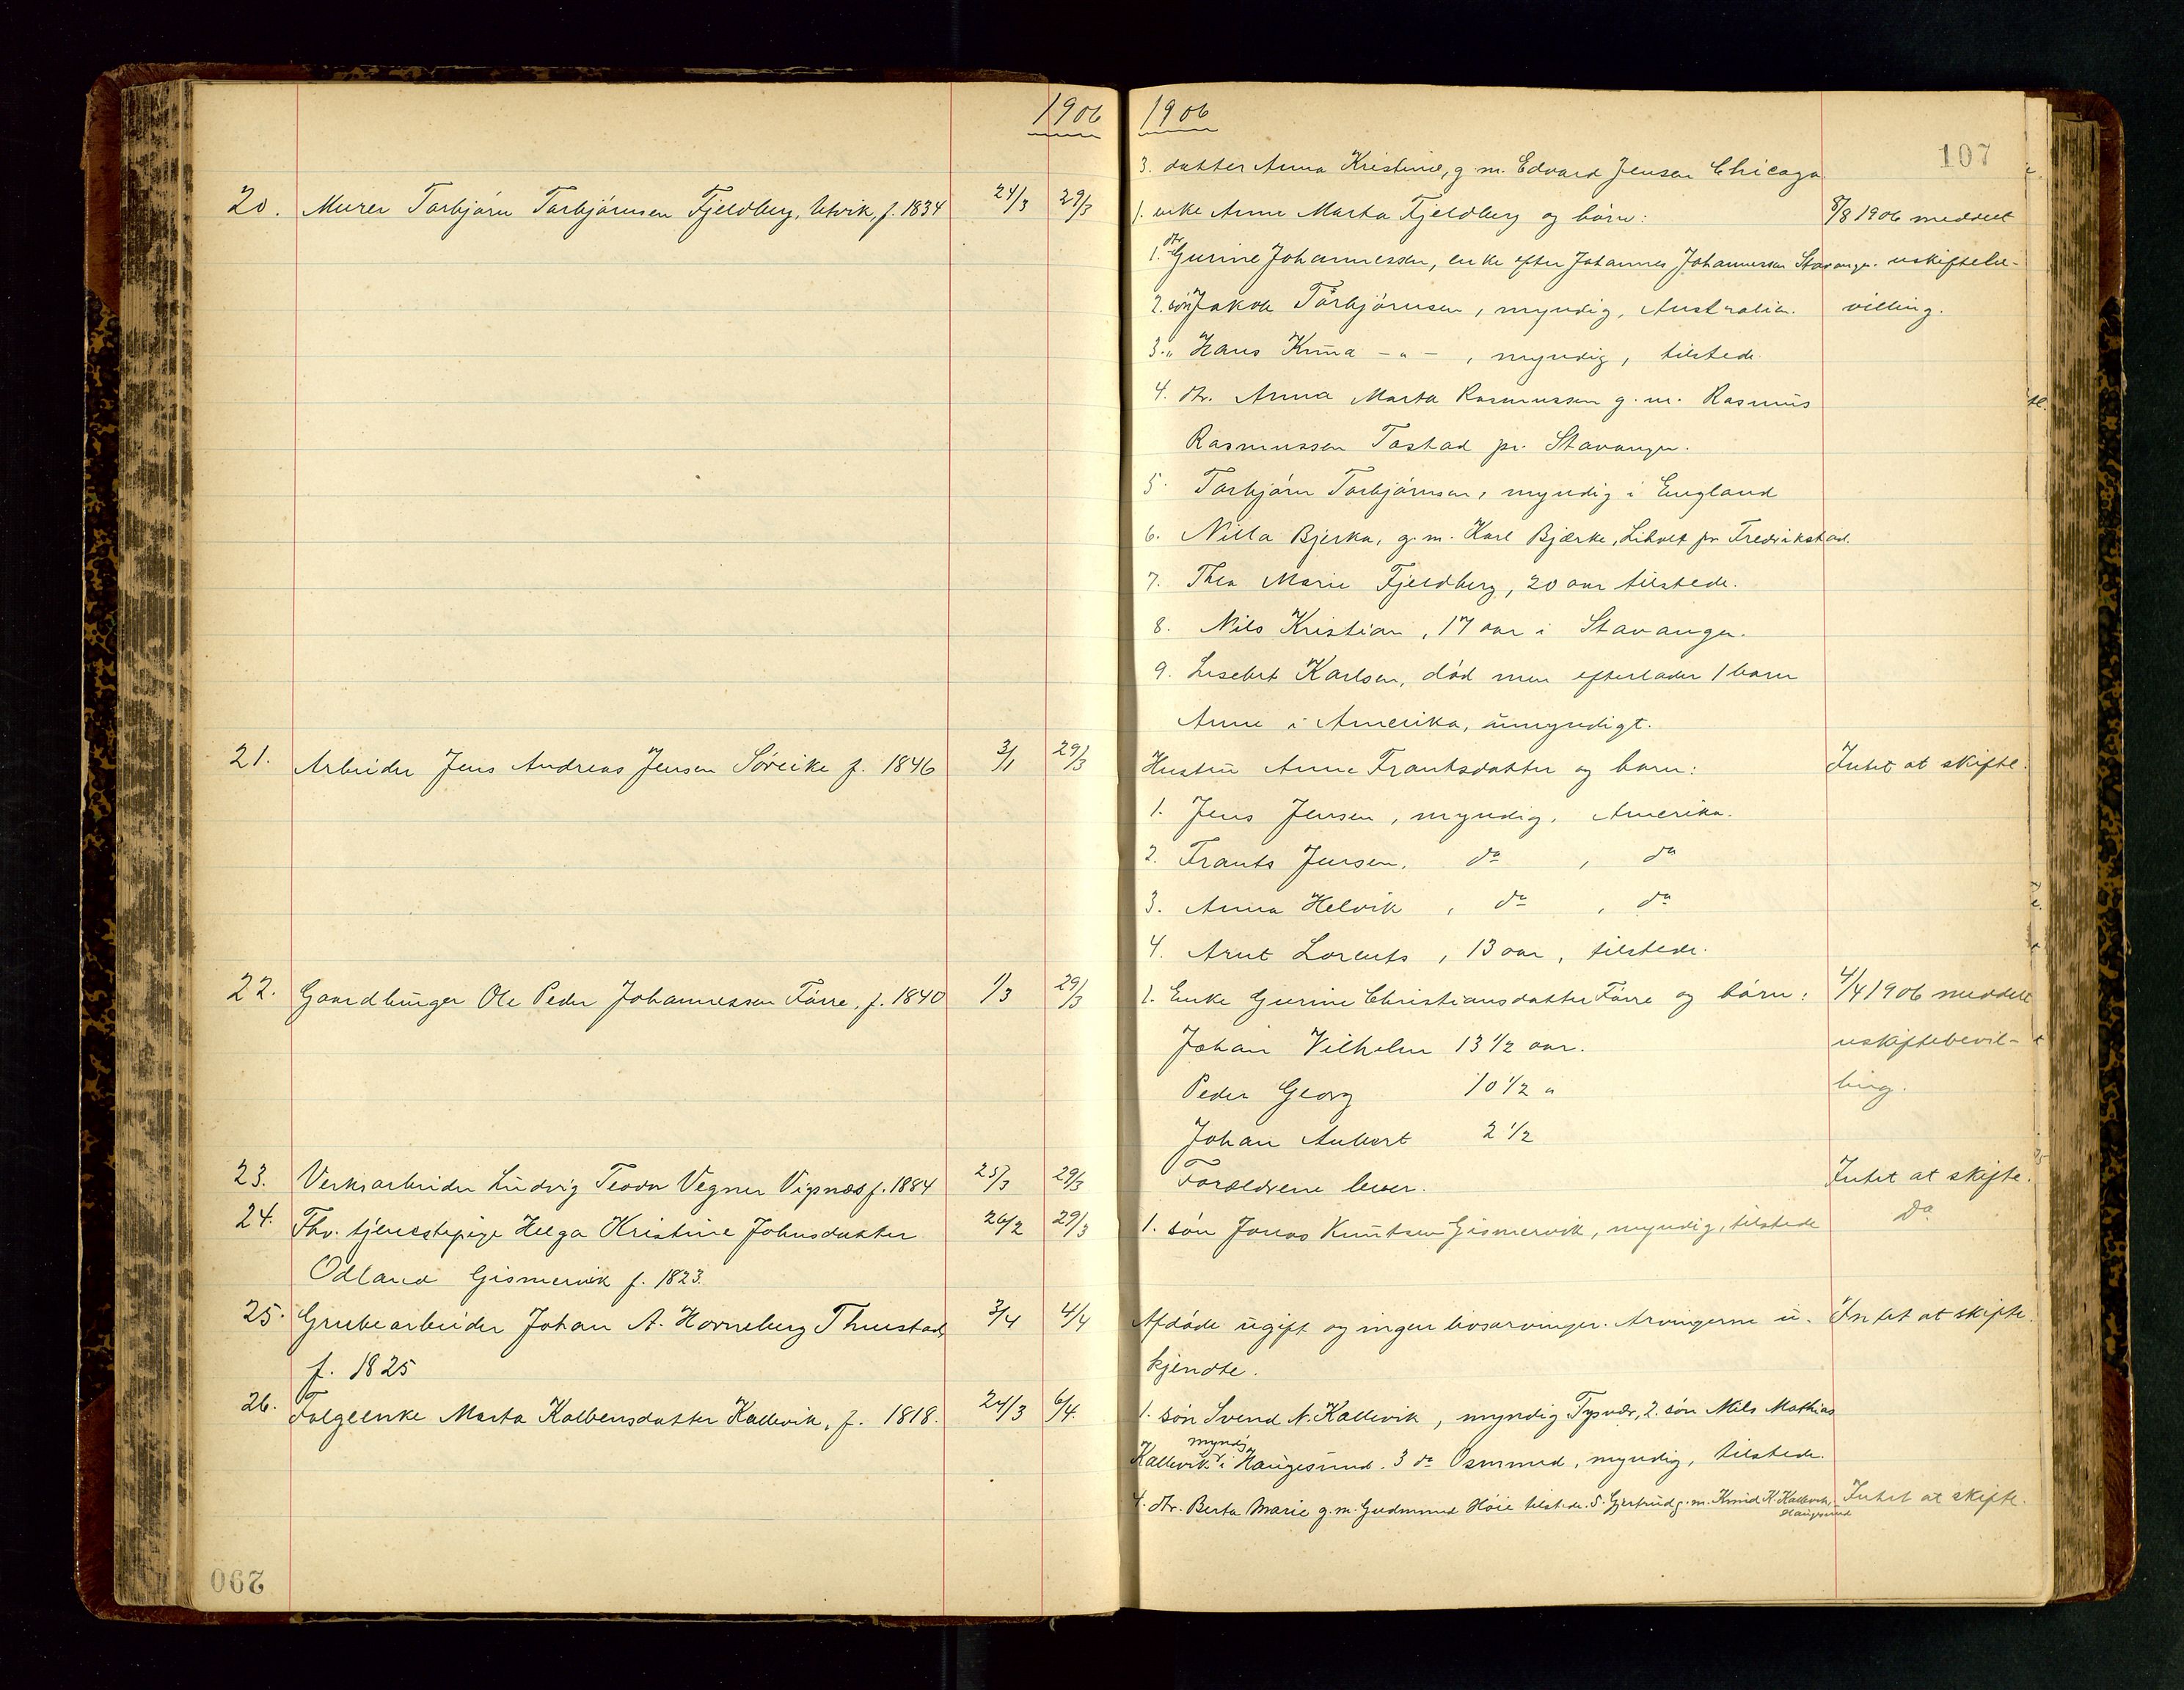 1906
20. Murer Torbjørn Torbjørnsen Fjeldberg, Utvik, f. 1834 24/3 29/3
21. Arbeider Jens Andreas Jensen Søreike f. 1846 3/1 29/3
22. Gaardbruger Ole Peder Johannessen Førre, f. 1840 1/3 29/3
23. Verksarbeider Ludvig Teodor Vegner Vignæs f. 1884 25/3 29/3
24. Fhv. tjenestepige Helga Kristine Johnsdatter 26/2 29/3
Odland Gismervik f. 1823.
25. Grubearbeider Johan A. Horneberg Thuestad 3/4 4/4
f. 1825
26. Folgeenke Marta Kolbensdatter Kallevik, f. 1818. 24/3 6/4
290
1906
107
3. datter Anna Kristine, g. m. Edvard Jensen Chicago.
1. enke Anne Marta Fjeldberg og børn: 8/8 1906 meddelt
1. dtr. Gurine Johannessen, enke efter Johannes Johannessen Stavanger. uskiftebe-
2. søn Jakob Torbjørnsen, myndig, Australien. villing.
3. " Hans Knud - " - , myndig, tilstede.
4. dtr. Anna Marta Rasmussen g. m. Rasmus
Rasmussen Tastad pr. Stavanger.
5. Torbjørn Torbjørnsen, myndig i England
6. Nilla Bjerka, g. m. Karl Bjærke, Liholt pr Fredrikstad.
7. Thea Marie Fjeldberg, 20 aar tilstede.
8. Nils Kristian, 17 aar i Stavanger.
9. Lisebet Karlsen, død men efterlader 1 barn
Anne i Amerika, umyndigt.
Hustru Anne Frantsdatter og barn: Intet at skifte.
1. Jens Jensen, myndig, Amerika.
2. Frants Jensen, do , do
3. Anna Helvik , do , do
4. Arnt Lorents, 13 aar, tilstede.
1. Enke Gurine Christiansdatter Førre og børn: 4/4 1906 meddelt
Johan Vilhelm 13 1/2 aar. uskiftebevil-
Peder Georg 10 1/2 " ling.
Johan Aubert 2 1/2
Forældrene lever. Intet at skifte.
1. søn Jonas Knutsen Gismervik, myndig, tilstede do
Afdøde ugift og ingen livsarvinger. Arvingerne u- Intet at skifte.
kjendte.
1. søn Svend N. Kallevik, myndig Tysvær, 2. søn Nils Mathias
myndig
Kallevik i Haugesund. 3 do Osmund, myndig, tilstede.
4. dtr. Berta Marie g. m. Gudmund Høie tilstede. 5. Gjertrud g. m. Knud K. Kallevik, Intet at skifte.
Haugesund